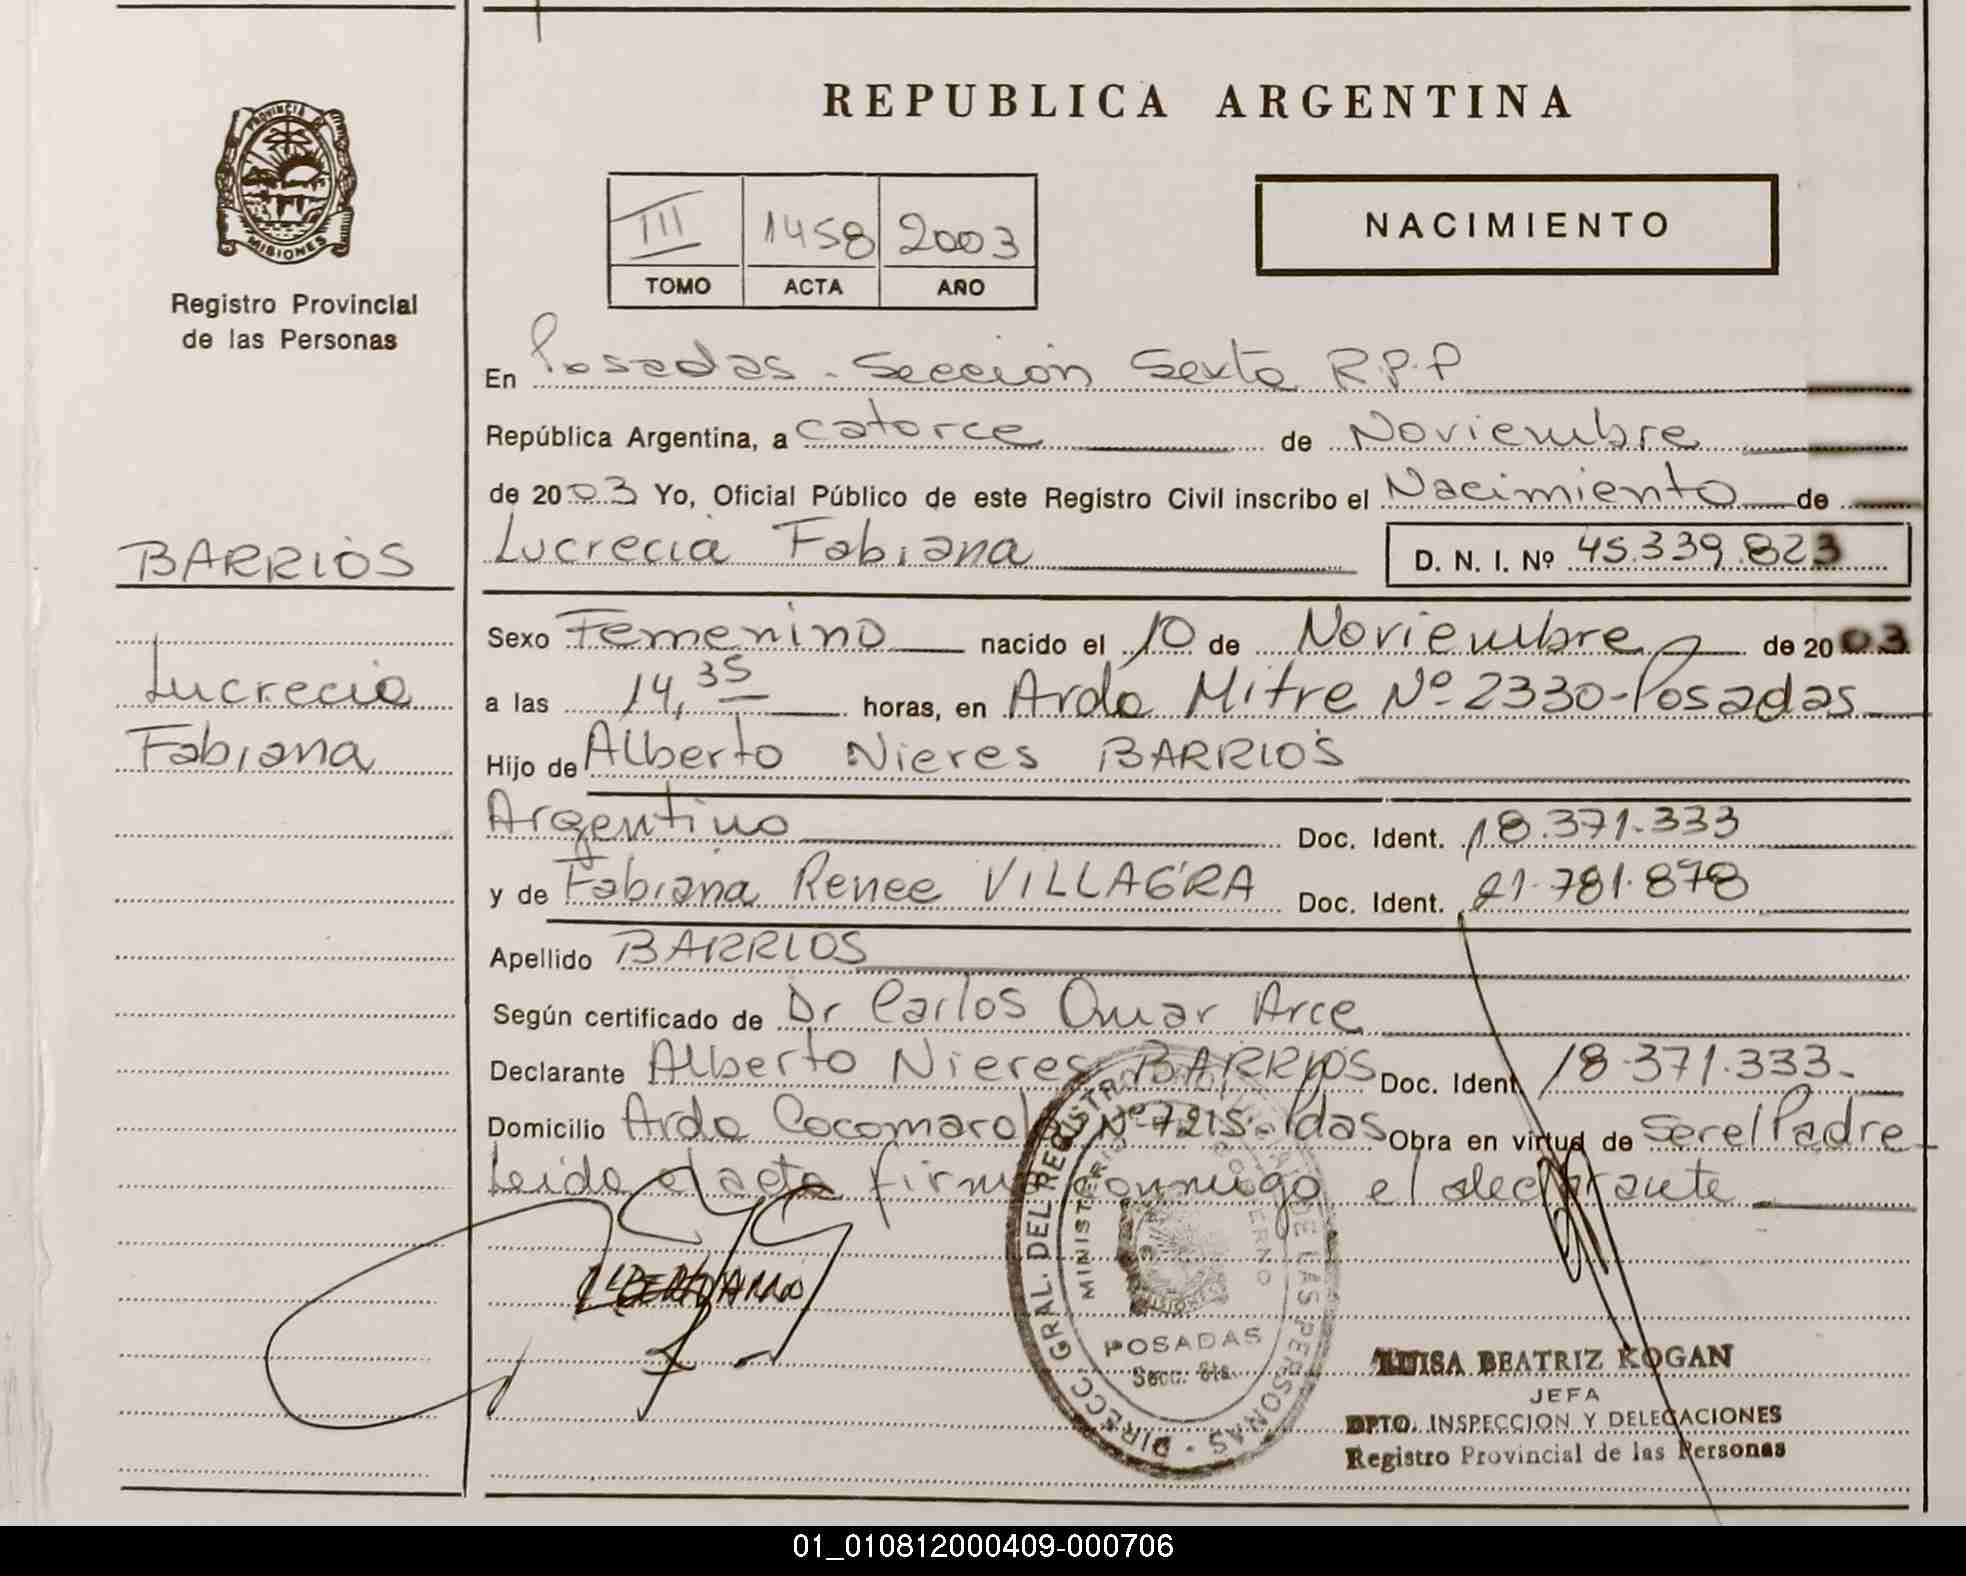 REPUBLICA ARGENTINA
PROVINCIA DE
MISIONES
Registro Provincial
de las Personas
III 1458 2003
TOMO ACTA AÑO
NACIMIENTO
En Posadas - Sección Sexta R.P.P
República Argentina, a catorce de Noviembre
de 2003 Yo, Oficial Público de este Registro Civil inscribo el Nacimiento de
BARRIOS
Lucrecia Fabiana
D. N. I. Nº 45.339.823
Sexo Femenino nacido el 10 de Noviembre de 2003
Lucrecia
Fabiana
a las 14,35 horas, en Avda Mitre Nº 2330-Posadas
Hijo de Alberto Nieres BARRIOS
Argentino Doc. Ident. 18.371.333
y de Fabiana Renee VILLAGRA Doc. Ident. 21.781.878
Apellido BARRIOS
Según certificado de Dr Carlos Omar Arce
Declarante Alberto Nieres BARRIOS Doc. Ident. 18.371.333-
Domicilio Avda Cocomarola Nº 7215. Pdas Obra en virtud de Ser el Padre
Leida el acta firma conmigo el declarante
DIRECC GRAL. DEL REGISTRO PROVINCIAL DE LAS PERSONAS
MINISTERIO GOBIERNO
MISIONES
POSADAS
Secc. 6ta.
LUISA BEATRIZ KOGAN
JEFA
DPTO. INSPECCION Y DELEGACIONES
Registro Provincial de las Personas
01_010812000409-000706